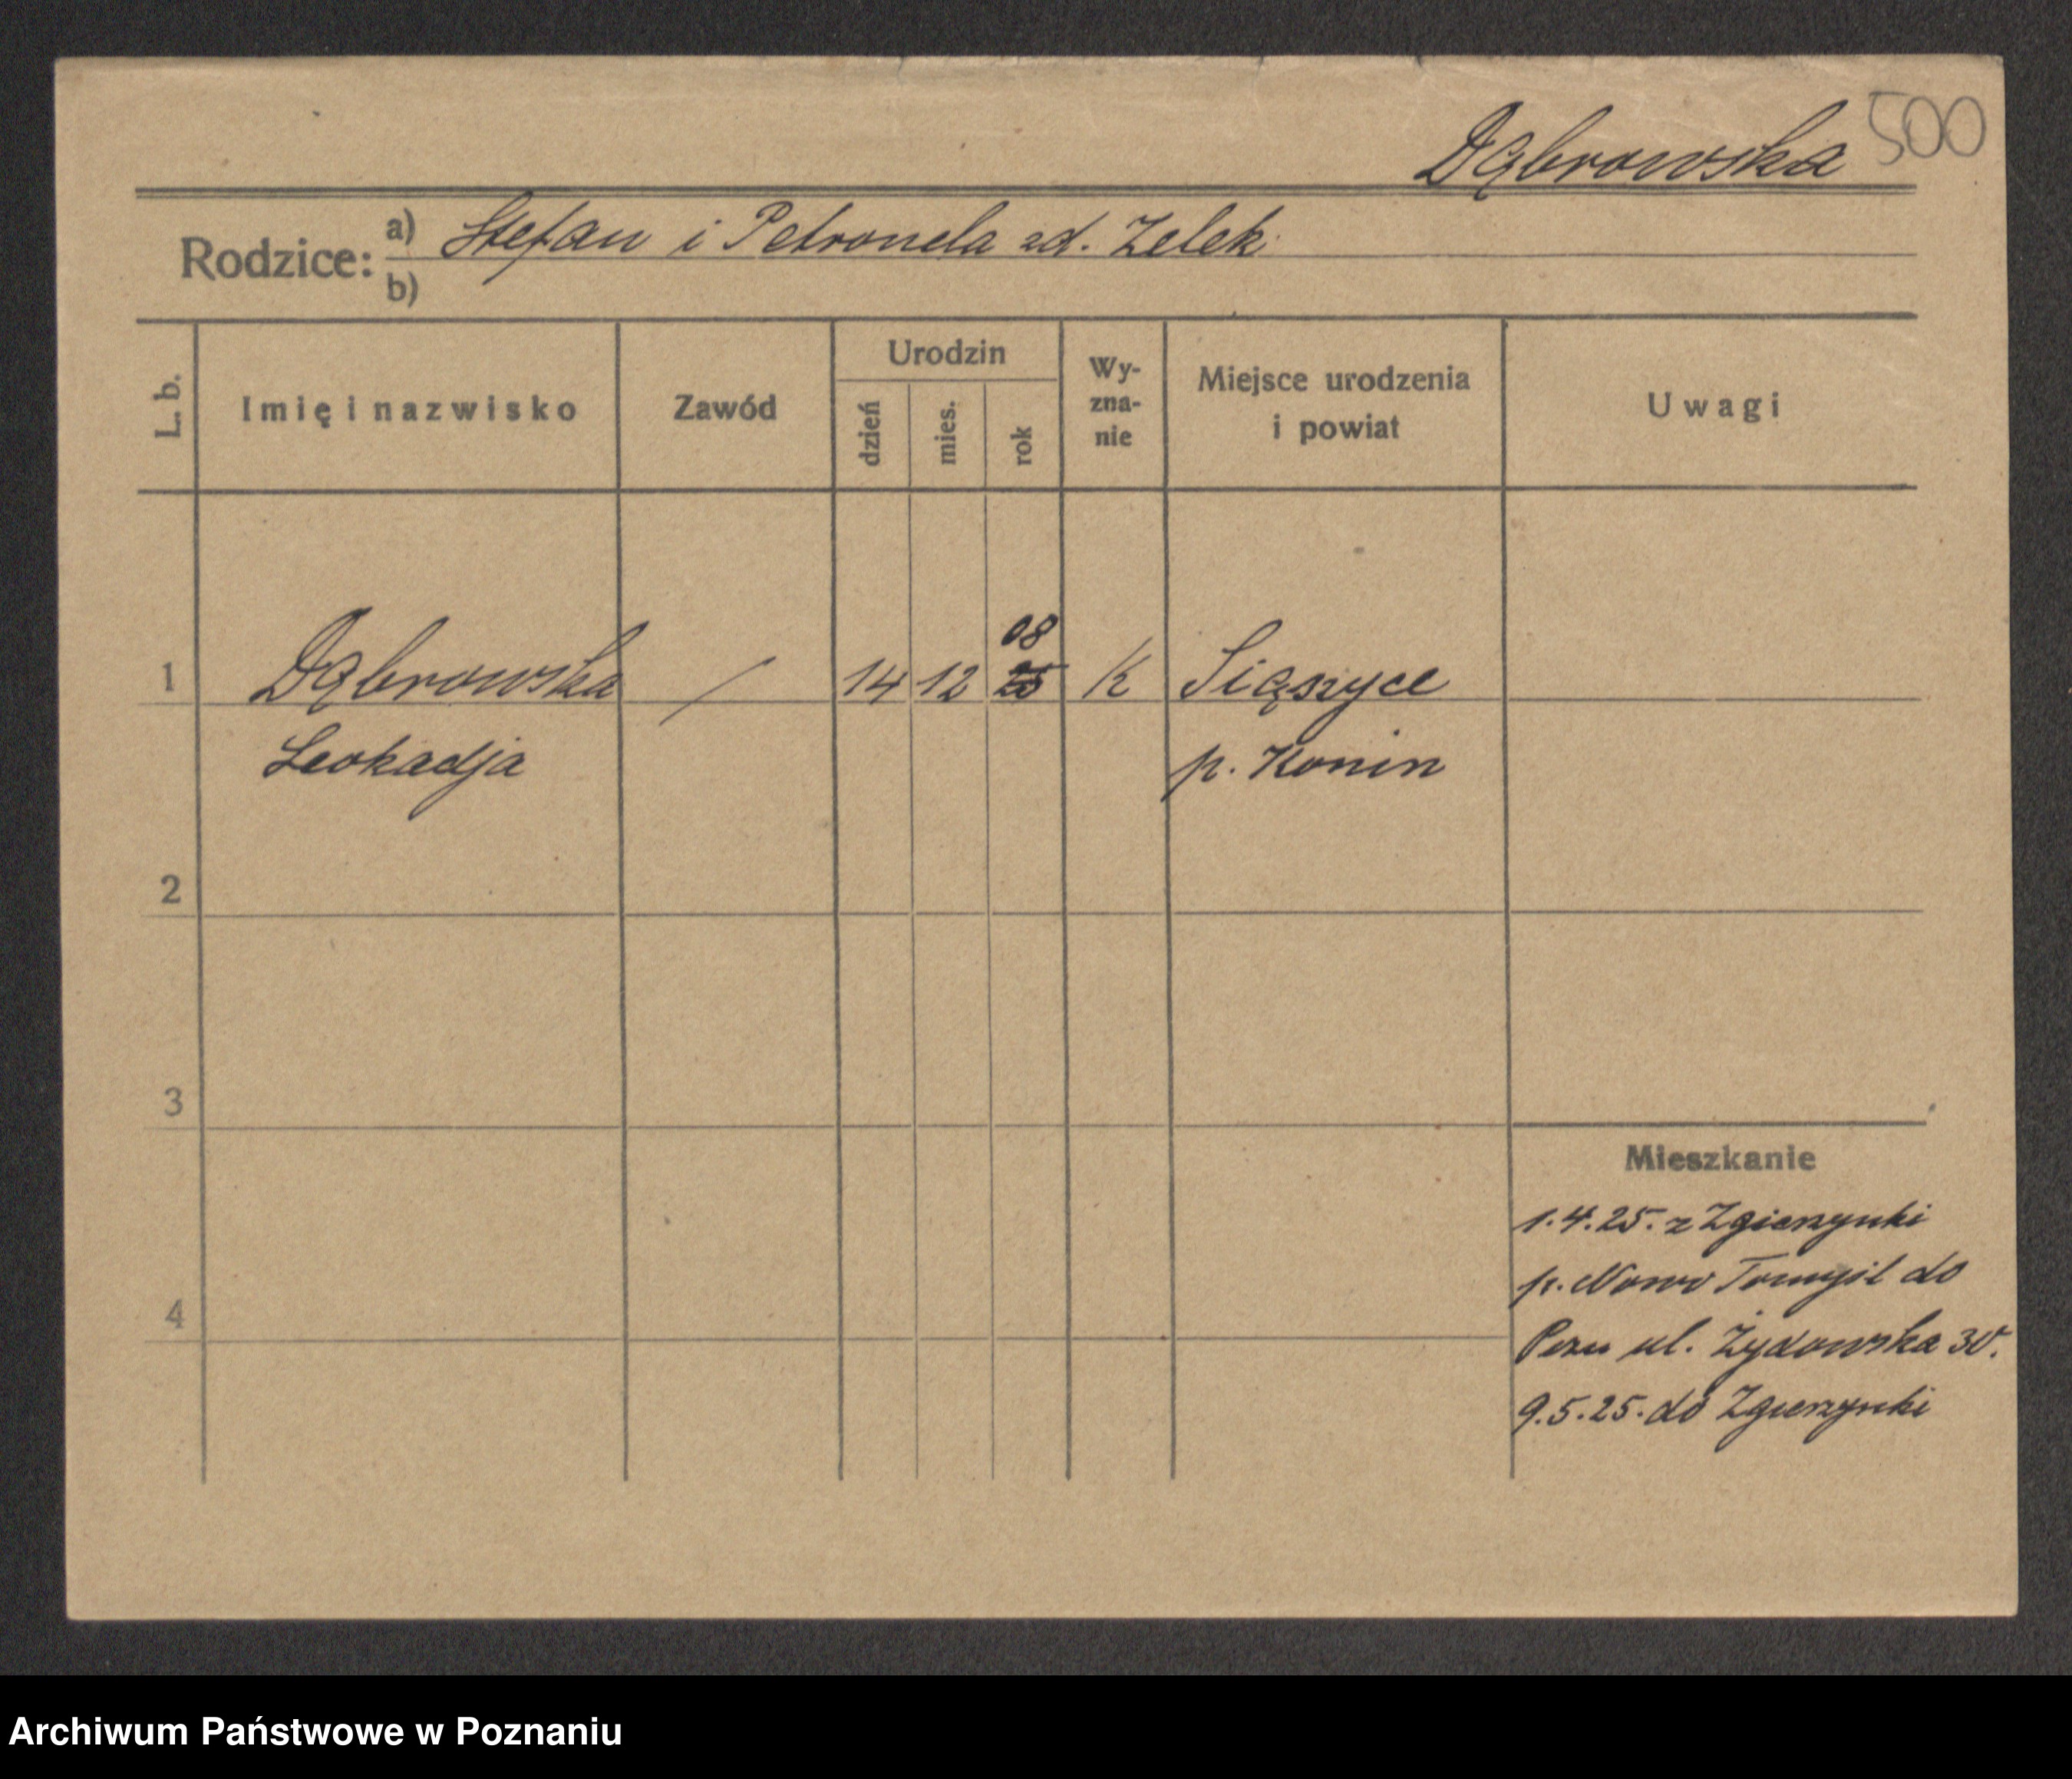 Dąbrowska 500
Rodzice: a) Stefan i Petronela zd. Zelek
b)
L. b. Imię i nazwisko Zawód Urodzin dzień mies. rok Wy-zna-nie Miejsce urodzenia i powiat Uwagi
08
1 Dąbrowska / 14 12 25 K Siąszyce
Leokadja p. Konin
2
3
Mieszkanie
1.4.25. z Zgierzynki
p. Nowo Tomyśl do
4
Pozn ul. Żydowska 30.
9.5.25. do Zgierzynki
Archiwum Państwowe w Poznaniu